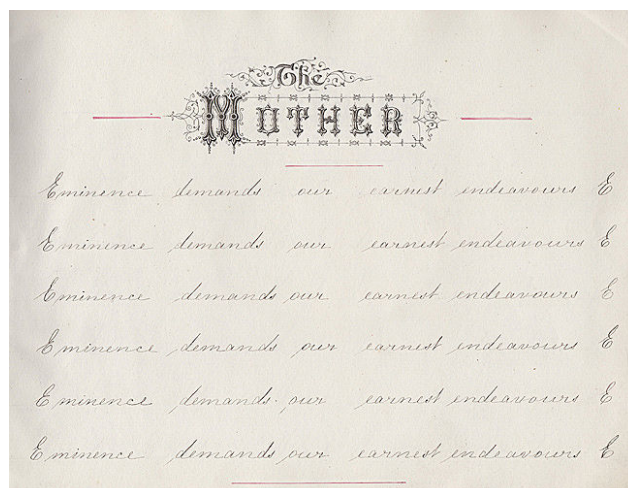 The
MOTHER
Eminence demands our earnest endeavours E
Eminence demands our earnest endeavours E
Eminence demands our earnest endeavours E
Eminence demands our earnest endeavours E
Eminence demands our earnest endeavours E
Eminence demands our earnest endeavours E